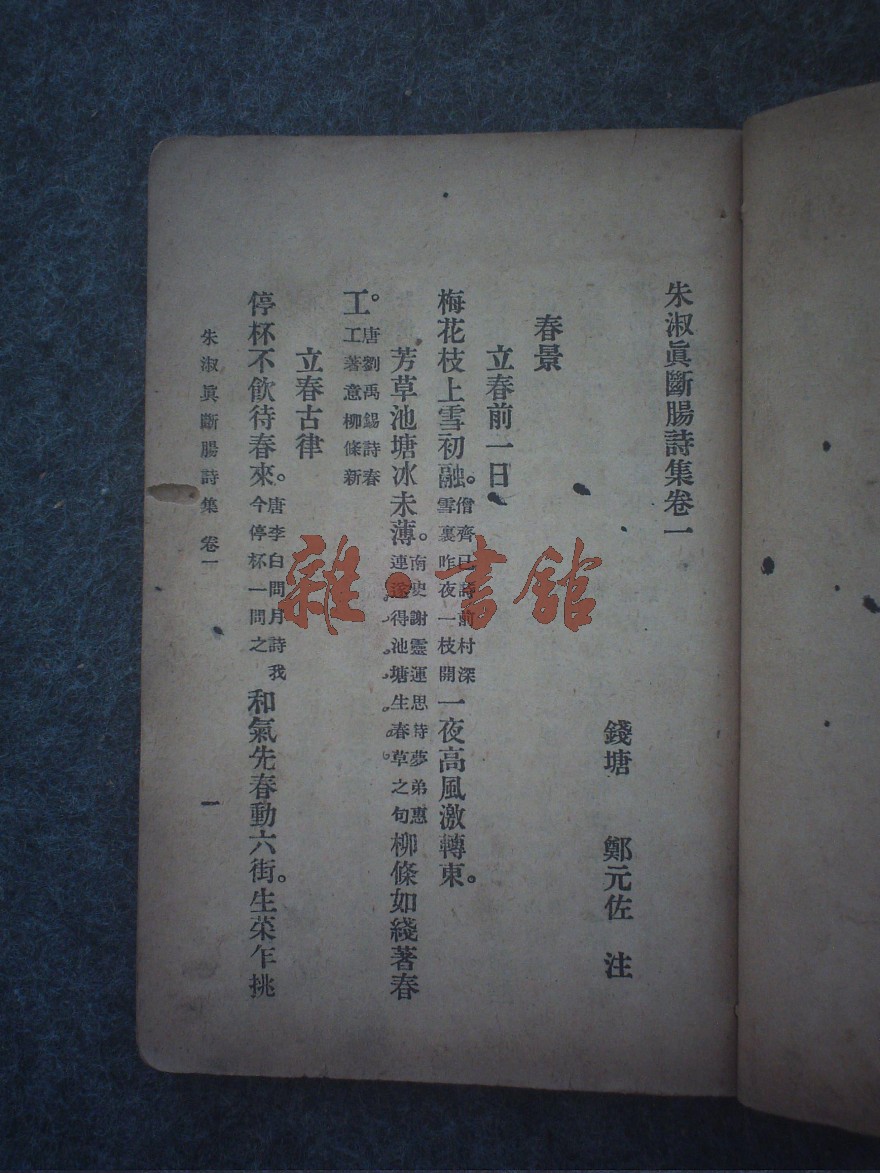 朱淑眞斷腸詩集卷一
錢塘　鄭元佐　注
春景
立春前一日
梅花枝上雪初融。僧齊已詩前村深雪裏昨夜一枝開一夜高風激轉東。
芳草池塘冰未薄。南史謝靈運思詩夢弟惠連遂得池塘生春草之句柳條如綫著春
工。唐劉禹錫詩春工著意柳條新
立春古律
停杯不飲待春來。唐李白問月詩我今停杯一問之和氣先春動六街。生菜乍挑
朱淑眞斷腸詩集　卷一　一
雜·書館